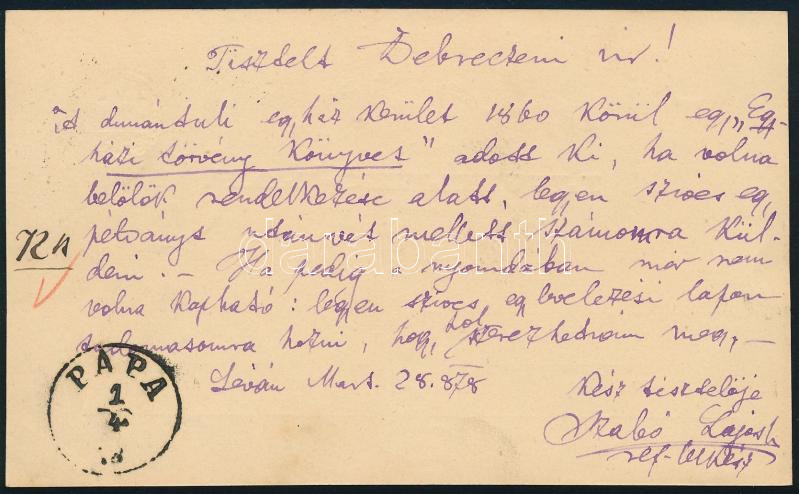 Tisztelt Debreczeni úr!
A dunántúli egyház kerület 1860 körül egy „Egy-
házi törvény könyvet" adott ki, ha volna
belőlök rendelkezése alatt, legyen szíves egy
példányt utánvét mellett számomra kül-
deni. – Ha pedig a nyomdában már nem
volna kapható: legyen szíves, egy levelezési lapon
tudomásomra hozni, hogy hol szerezhetném meg. –
Léván Mart. 28. 878
Kész tisztelője
Szabó Lajos
ref. lelkész
PÁPA
1
4
darabanth